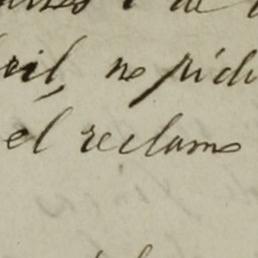 de
ril, no pidi
el reclamo